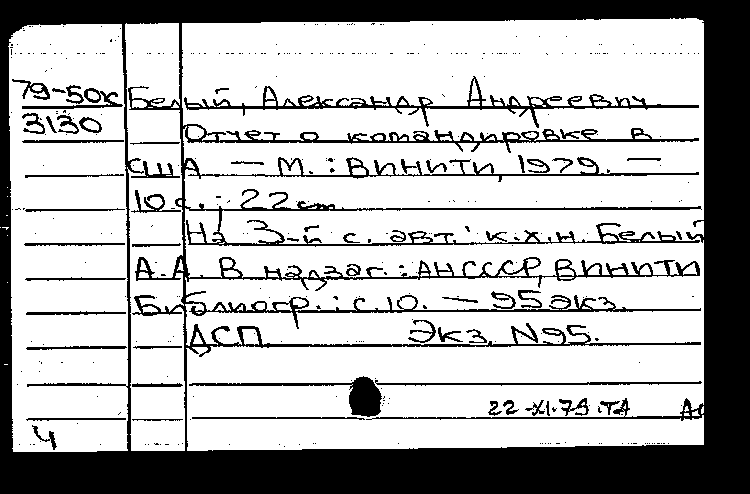 79-50к Белый, Александр Андреевич
3130 Отчет о командировке в
США — М.: ВИНИТИ, 1979. —
10 с.; 22 cm
На 3-й с. авт.: к.х.н. Белый
А.А. В надзаг.: АН СССР, ВИНИТИ
Библиогр.: с. 10. — 95 экз.
ДСП. Экз. N95.
22-XI-79 .ТА
Ч